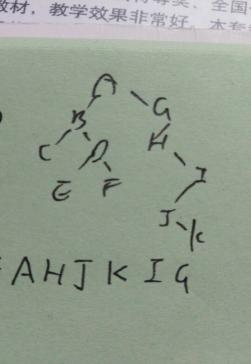 教材，教学效果非常好。本套
A
B G
H
C D I
E F
J
K
AHJKIG